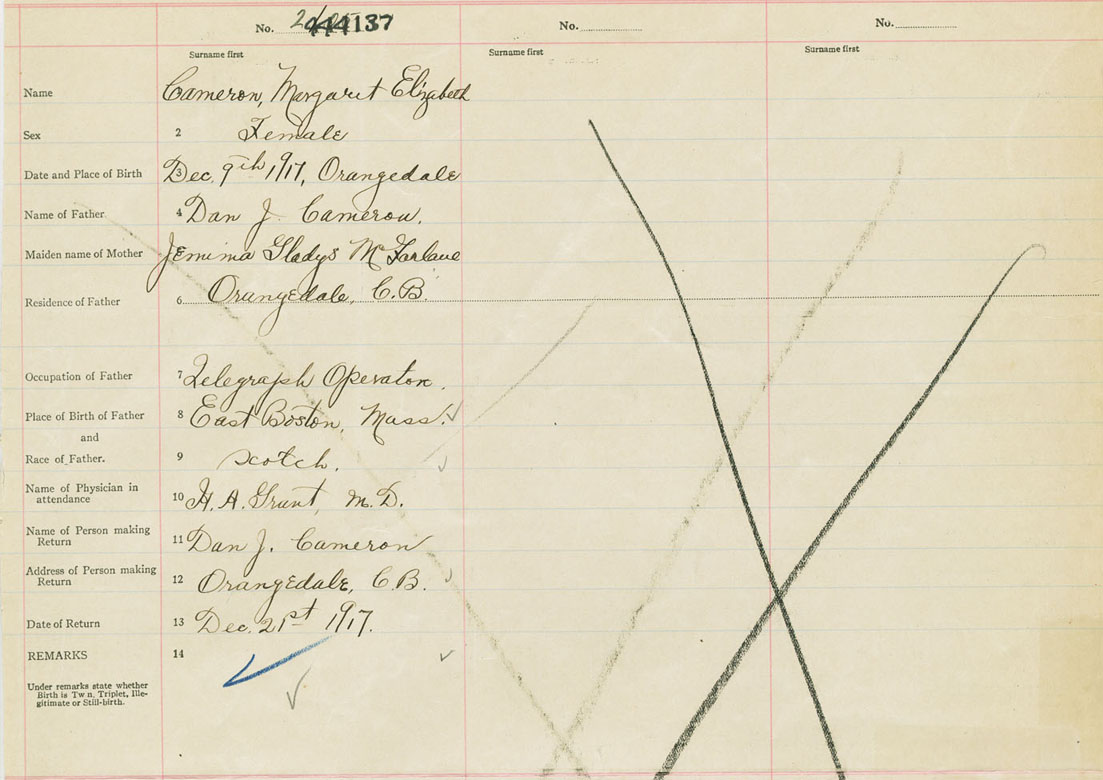 No. 137
No.
No.
Surname first
Surname first
Surname first
Name Cameron, Margaret Elizabeth
Sex 2 Female
Date and Place of Birth 3 Dec. 9th 1917, Orangedale
Name of Father 4 Dan J. Cameron.
Maiden name of Mother Jemima Gladys McFarlane
Residence of Father 6 Orangedale, C.B.
Occupation of Father 7 Telegraph Operator.
Place of Birth of Father 8 East Boston, Mass.
and
Race of Father. 9 Scotch.
Name of Physician in
attendance 10 H. A. Grant, M.D.
Name of Person making
Return 11 Dan J. Cameron
Address of Person making
Return 12 Orangedale, C.B.
Date of Return 13 Dec. 21st 1917.
REMARKS 14
Under remarks state whether
Birth is Tw n, Triplet, Ille-
gitimate or Still-birth.